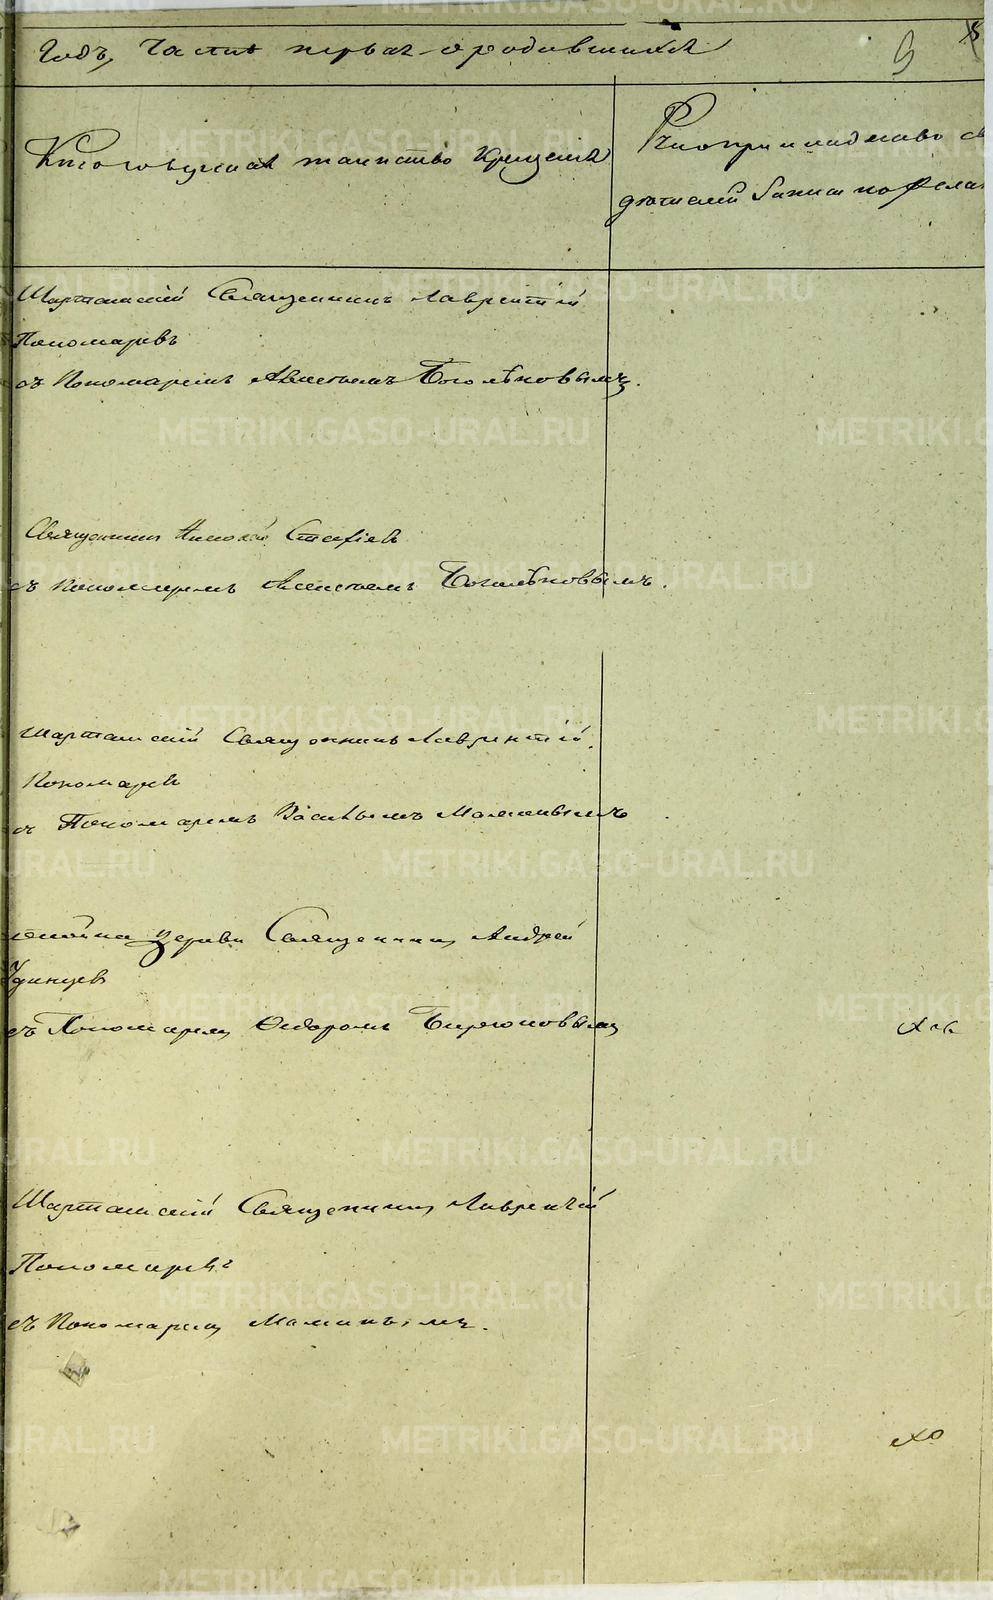 Годъ, Часть первая о родившихся
9
Кто совершалъ таинство крещенія
Рукоприкладство св
дѣтелей записи по желан
Шарташскій Священникъ Лаврентій
Пономаревъ
съ Пономаремъ Алексѣемъ Боголѣповымъ.
Священникъ Николай Стефановъ
съ Пономаремъ Алексѣемъ Боголѣповымъ.
Шарташскій Священникъ Лаврентій
Пономаревъ
съ Пономаремъ Васильемъ Маминымъ
церкви Священникъ Андрей
Удинцевъ
съ Пономаремъ Ѳедоромъ Бирюковымъ
Шарташскій Священникъ Лаврентій
Пономаревъ
съ Пономаремъ Маминымъ.
METRIKI.GASO-URAL.RU